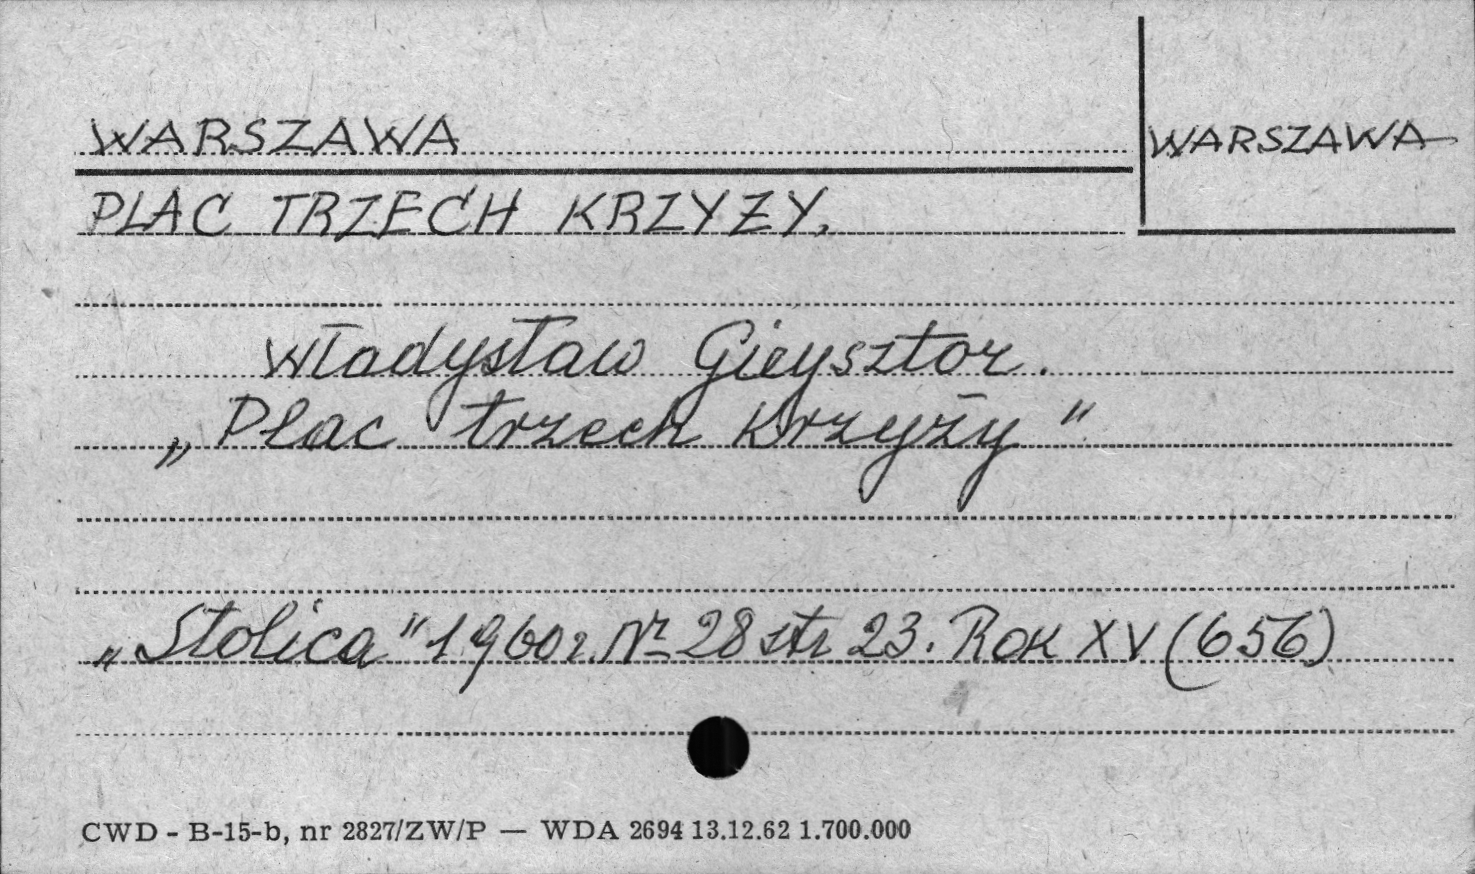 WARSZAWA
WARSZAWA
PLAC TRZECH KRZYŻY.
Władysław Gieysztor.
„Plac trzech Krzyży"
„Stolica" 1960 r. Nr 28 str 23. Rok XV (656)
CWD - B-15-b, nr 2827/ZW/P — WDA 2694 13.12.62 1.700.000